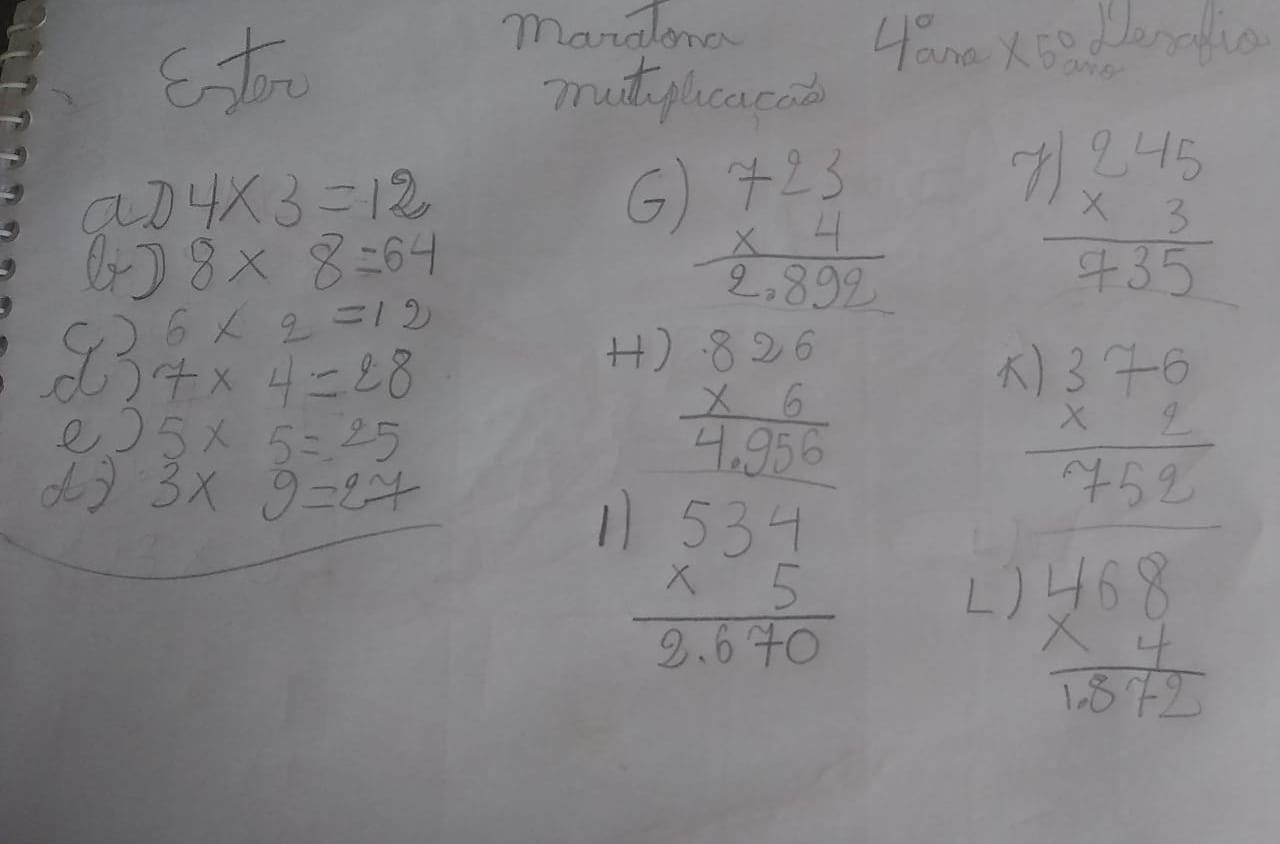 Ester
Maratona
mutiplicação
4º ano X 5º ano Desafio
a) 4 X 3 = 12
b) 8 X 8 = 64
c) 6 X 2 = 12
d) 7 X 4 = 28
e) 5 X 5 = 25
3 X 9 = 27
G) 723
X 4
2.892
H) 826
X 6
4.956
I) 534
X 5
2.670
J) 245
X 3
735
K) 376
X 2
752
L) 468
X 4
1.872